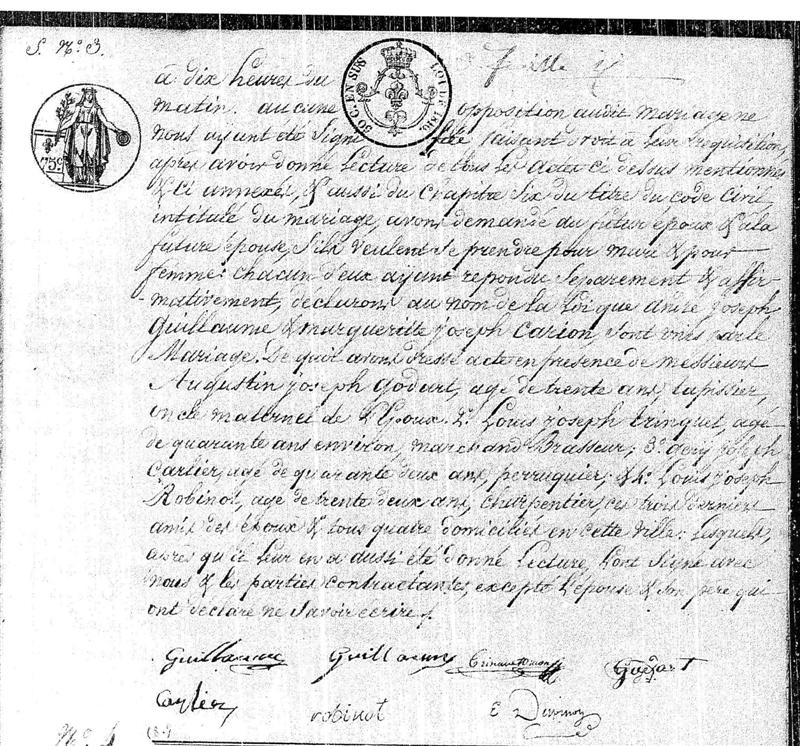 S. N.º 3.
50 C. EN SUS LOI DE 1816
75 c
à dix heures du
matin. aucune opposition audit mariage ne
nous ayant été Signifiée faisant droit à leur requisition,
après avoir donné Lecture de tous les actes ci dessus mentionnés
& ci annexés, & aussi du Chapitre Six du titre du code Civil,
intitulé du mariage, avons demandé au futur époux & à la
future épouse, S'ils veulent se prendre pour mari & pour
femme: chacun d'eux ayant repondu Separement & affir
mativement, declarons au nom de la Loi que andré joseph
Guillaume & marguerite joseph Carion, Sont unis par le
Mariage. De quoi avons dressé acte en présence de messieurs
Augustin joseph Godart, agé de trente ans, tapissier,
oncle maternel de L'Epoux. 2.º Louis joseph trinquet, agé
de quarante ans environ, marchand Brasseur; 3.º gery joseph
Cartier, agé de quarante deux ans, perruquier; & 4.º Louis joseph
Robinot, agé de trente deux ans, Charpentier, ces trois derniers
amis des époux & tous quatre domiciliés en cette ville: Lesquels,
après qu'il leur en a aussi été donné Lecture, l'ont Signé avec
nous & les parties contractantes, excepté l'épouse & son père qui
ont declaré ne Savoir ecrire.
Guillaume Guillaume Godart
Cartier robinot